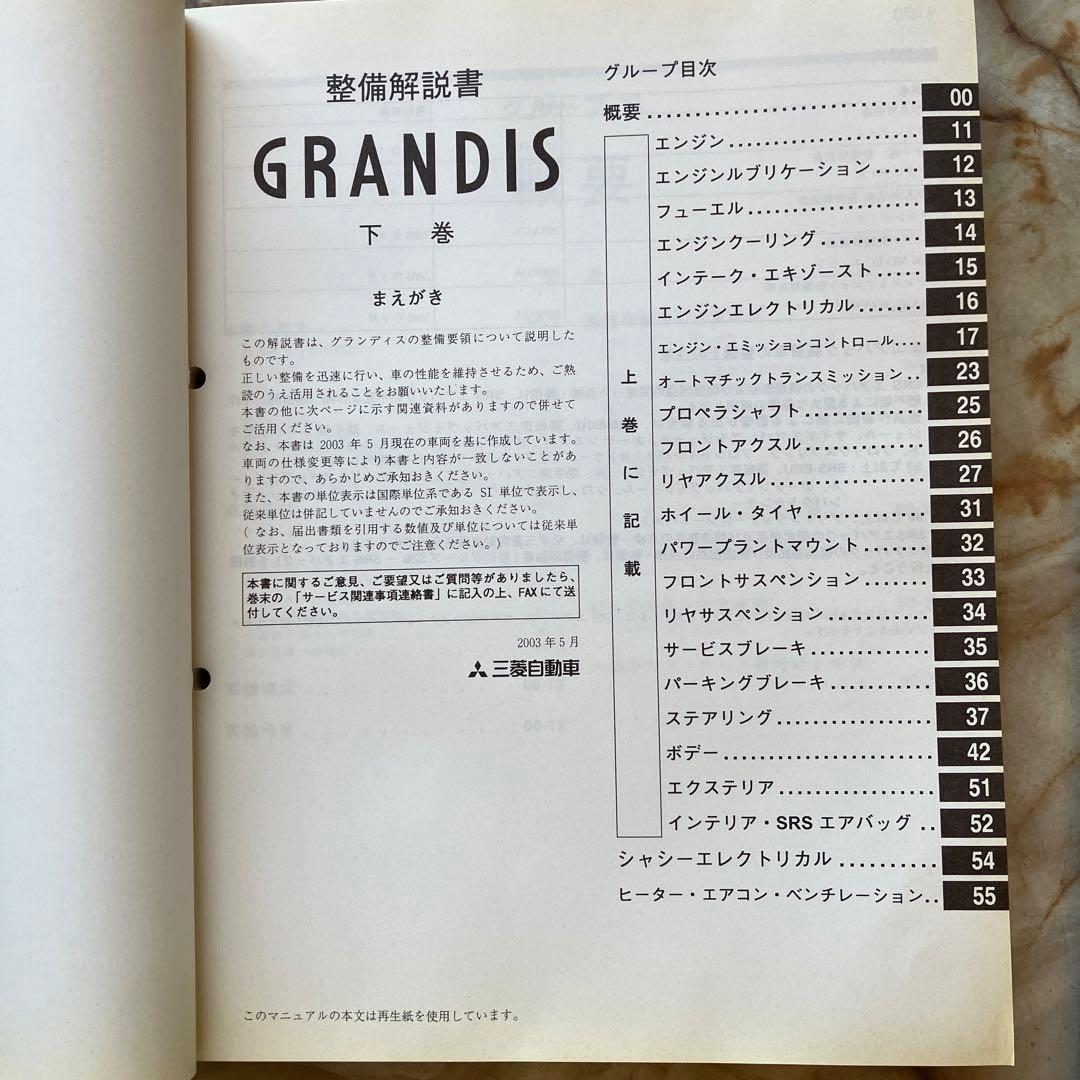 整備解説書
GRANDIS
下 巻
まえがき
この解説書は、グランディスの整備要領について説明した
ものです。
正しい整備を迅速に行い、車の性能を維持させるため、ご熟
読のうえ活用されることをお願いいたします。
本書の他に次ページに示す関連資料がありますので併せて
ご活用ください。
なお、本書は 2003 年 5 月現在の車両を基に作成しています。
車両の仕様変更等により本書と内容が一致しないことがあ
りますので、あらかじめご承知おきください。
また、本書の単位表示は国際単位系である SI 単位で表示し、
従来単位は併記していませんのでご承知おきください。
( なお、届出書類を引用する数値及び単位については従来単
位表示となっておりますのでご注意ください。)
本書に関するご意見、ご要望又はご質問等がありましたら、
巻末の 「サービス関連事項連絡書」に記入の上、FAX にて送
付してください。
2003 年 5 月
三菱自動車
このマニュアルの本文は再生紙を使用しています。
グループ目次
概要 ............................ 00
上巻に記載
エンジン .................... 11
エンジンルブリケーション ..... 12
フューエル .................. 13
エンジンクーリング ........... 14
インテーク・エキゾースト ..... 15
エンジンエレクトリカル ....... 16
エンジン・エミッションコントロール .... 17
オートマチックトランスミッション .. 23
プロペラシャフト ............ 25
フロントアクスル ............ 26
リヤアクスル ................ 27
ホイール・タイヤ ............ 31
パワープラントマウント ....... 32
フロントサスペンション ....... 33
リヤサスペンション ........... 34
サービスブレーキ ............ 35
パーキングブレーキ ........... 36
ステアリング ................ 37
ボデー ...................... 42
エクステリア ................ 51
インテリア・SRS エアバッグ .. 52
シャシーエレクトリカル .......... 54
ヒーター・エアコン・ベンチレーション .. 55